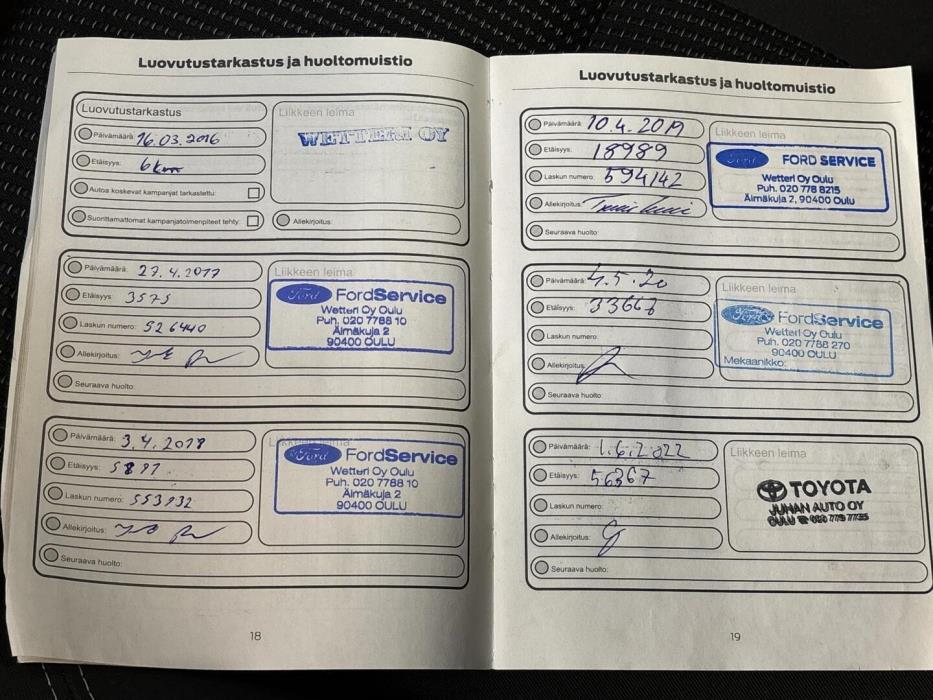 Luovutustarkastus ja huoltomuistio
Luovutustarkastus
Päivämäärä: 16.03.2016
Etäisyys: 6km
Autoa koskevat kampanjat tarkastettu:
Suorittamattomat kampanjatoimenpiteet tehty:
Liikkeen leima
WETTERI OY
Allekirjoitus:
Päivämäärä: 27.4.2017
Etäisyys: 3575
Laskun numero: 526440
Allekirjoitus:
Seuraava huolto:
Liikkeen leima
Ford FordService
Wetteri Oy Oulu
Puh. 020 7788 10
Äimäkuja 2
90400 OULU
Päivämäärä: 3.4.2018
Etäisyys: 5897
Laskun numero: 553932
Allekirjoitus:
Seuraava huolto:
Liikkeen leima
Ford FordService
Wetteri Oy Oulu
Puh. 020 7788 10
Äimäkuja 2
90400 OULU
18
Luovutustarkastus ja huoltomuistio
Päivämäärä: 10.4.2019
Etäisyys: 18989
Laskun numero: 594142
Allekirjoitus:
Seuraava huolto:
Liikkeen leima
Ford FORD SERVICE
Wetteri Oy Oulu
Puh. 020 778 8215
Äimäkuja 2, 90400 Oulu
Päivämäärä: 4.5.20
Etäisyys: 33667
Laskun numero:
Allekirjoitus:
Seuraava huolto:
Liikkeen leima
Ford FordService
Wetteri Oy Oulu
Puh. 020 7788 270
90400 OULU
Mekaanikko:
Päivämäärä: 1.6.2022
Etäisyys: 56367
Laskun numero:
Allekirjoitus:
Seuraava huolto:
Liikkeen leima
TOYOTA
JUHAN AUTO OY
OULU ☎ 020 779 7735
19